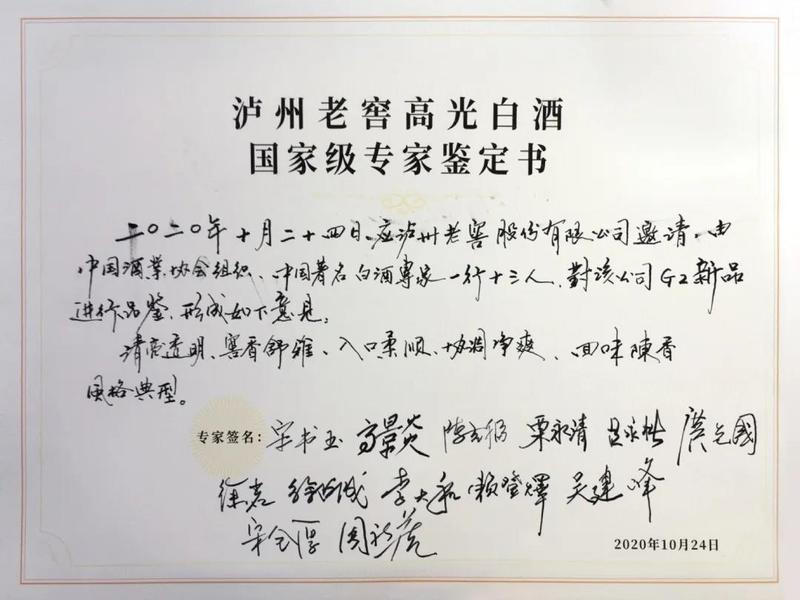 泸州老窖高光白酒
国家级专家鉴定书
二〇二〇年十月二十四日、应泸州老窖股份有限公司邀请、由
中国酒業协会组织、中国著名白酒專家一行十三人、對该公司G2新品
进行品鉴、形成如下意見:
清亮透明、窖香舒雅、入口柔顺、协调净爽、回味陳香
風格典型。
专家签名: 宋书玉 高景炎 栗永清 吕永杜 廣光國
徐岩 徐占成 李大和 赖登燡 吴建峰
宋全厚
2020年10月24日